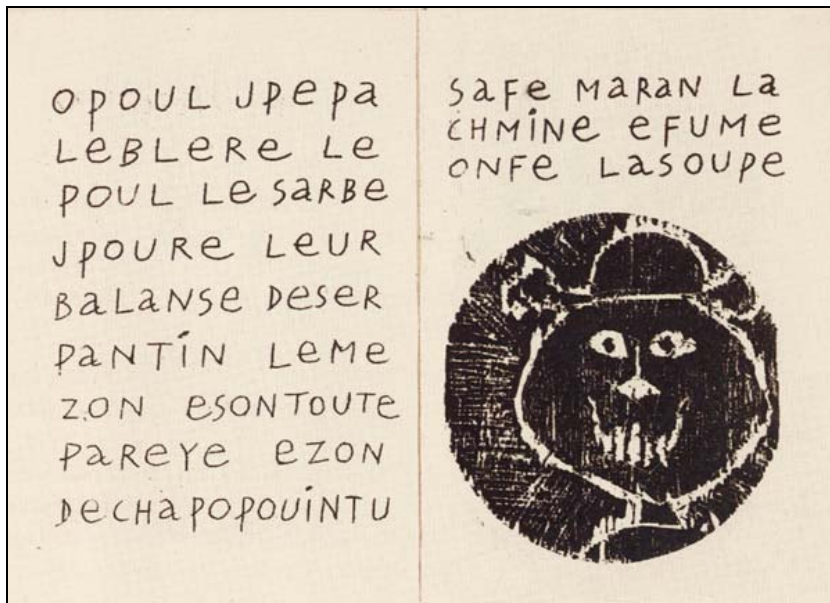 OPOUL JPePa
LeBLeRe Le
POUL Le SaRBe
JPOURe LeUR
BaLaNSe DeSeR
PaNTiN LeMe
ZON eSONTOUTe
PaReYe eZON
DeCHaPOPOUiNTU
SaFe MaRaN La
CHMiNe eFUMe
ONFe LaSOUPe